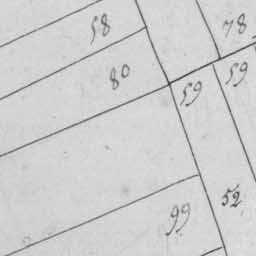 58
78
80
59
59
99
52